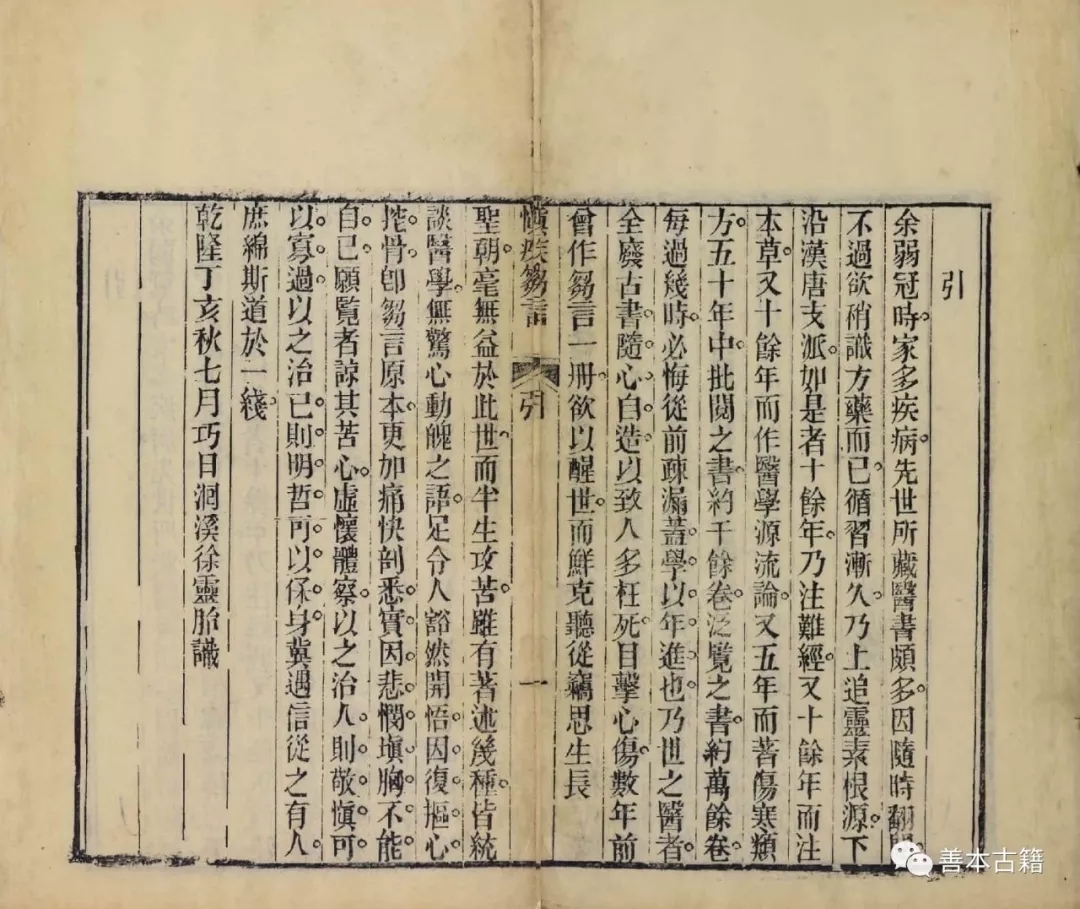 引
余弱冠時家多疾病先世所藏醫書頗多因隨時翻
不過欲稍識方藥而已循習漸久乃上追靈素根源下
沿漢唐支派如是者十餘年乃注難經又十餘年而注
本草又十餘年而作醫學源流論又五年而著傷寒類
方五十年中批閱之書約千餘卷泛覽之書約萬餘卷
每過幾時必悔從前疎漏蓋學以年進也乃世之醫者
全廢古書隨心自造以致人多枉死目擊心傷數年前
曾作芻言一冊欲以醒世而鮮克聽從竊思生長
慎疾芻言 引 一
聖朝毫無益於此世而半生攻苦雖有著述幾種皆統
談醫學無驚心動魄之語足令人豁然開悟因復摳心
挖骨卽芻言原本更加痛快剖悉實因悲憫塡胸不能
自已願覽者諒其苦心虛懷體察以之治人則敬愼可
以寡過以之治已則明哲可以保身冀遇信從之有人
庶綿斯道於一綫
乾隆丁亥秋七月巧日洄溪徐靈胎識
善本古籍